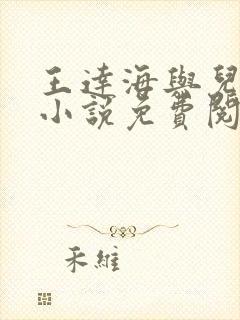 王達海與兒
小說免費閱
禾維